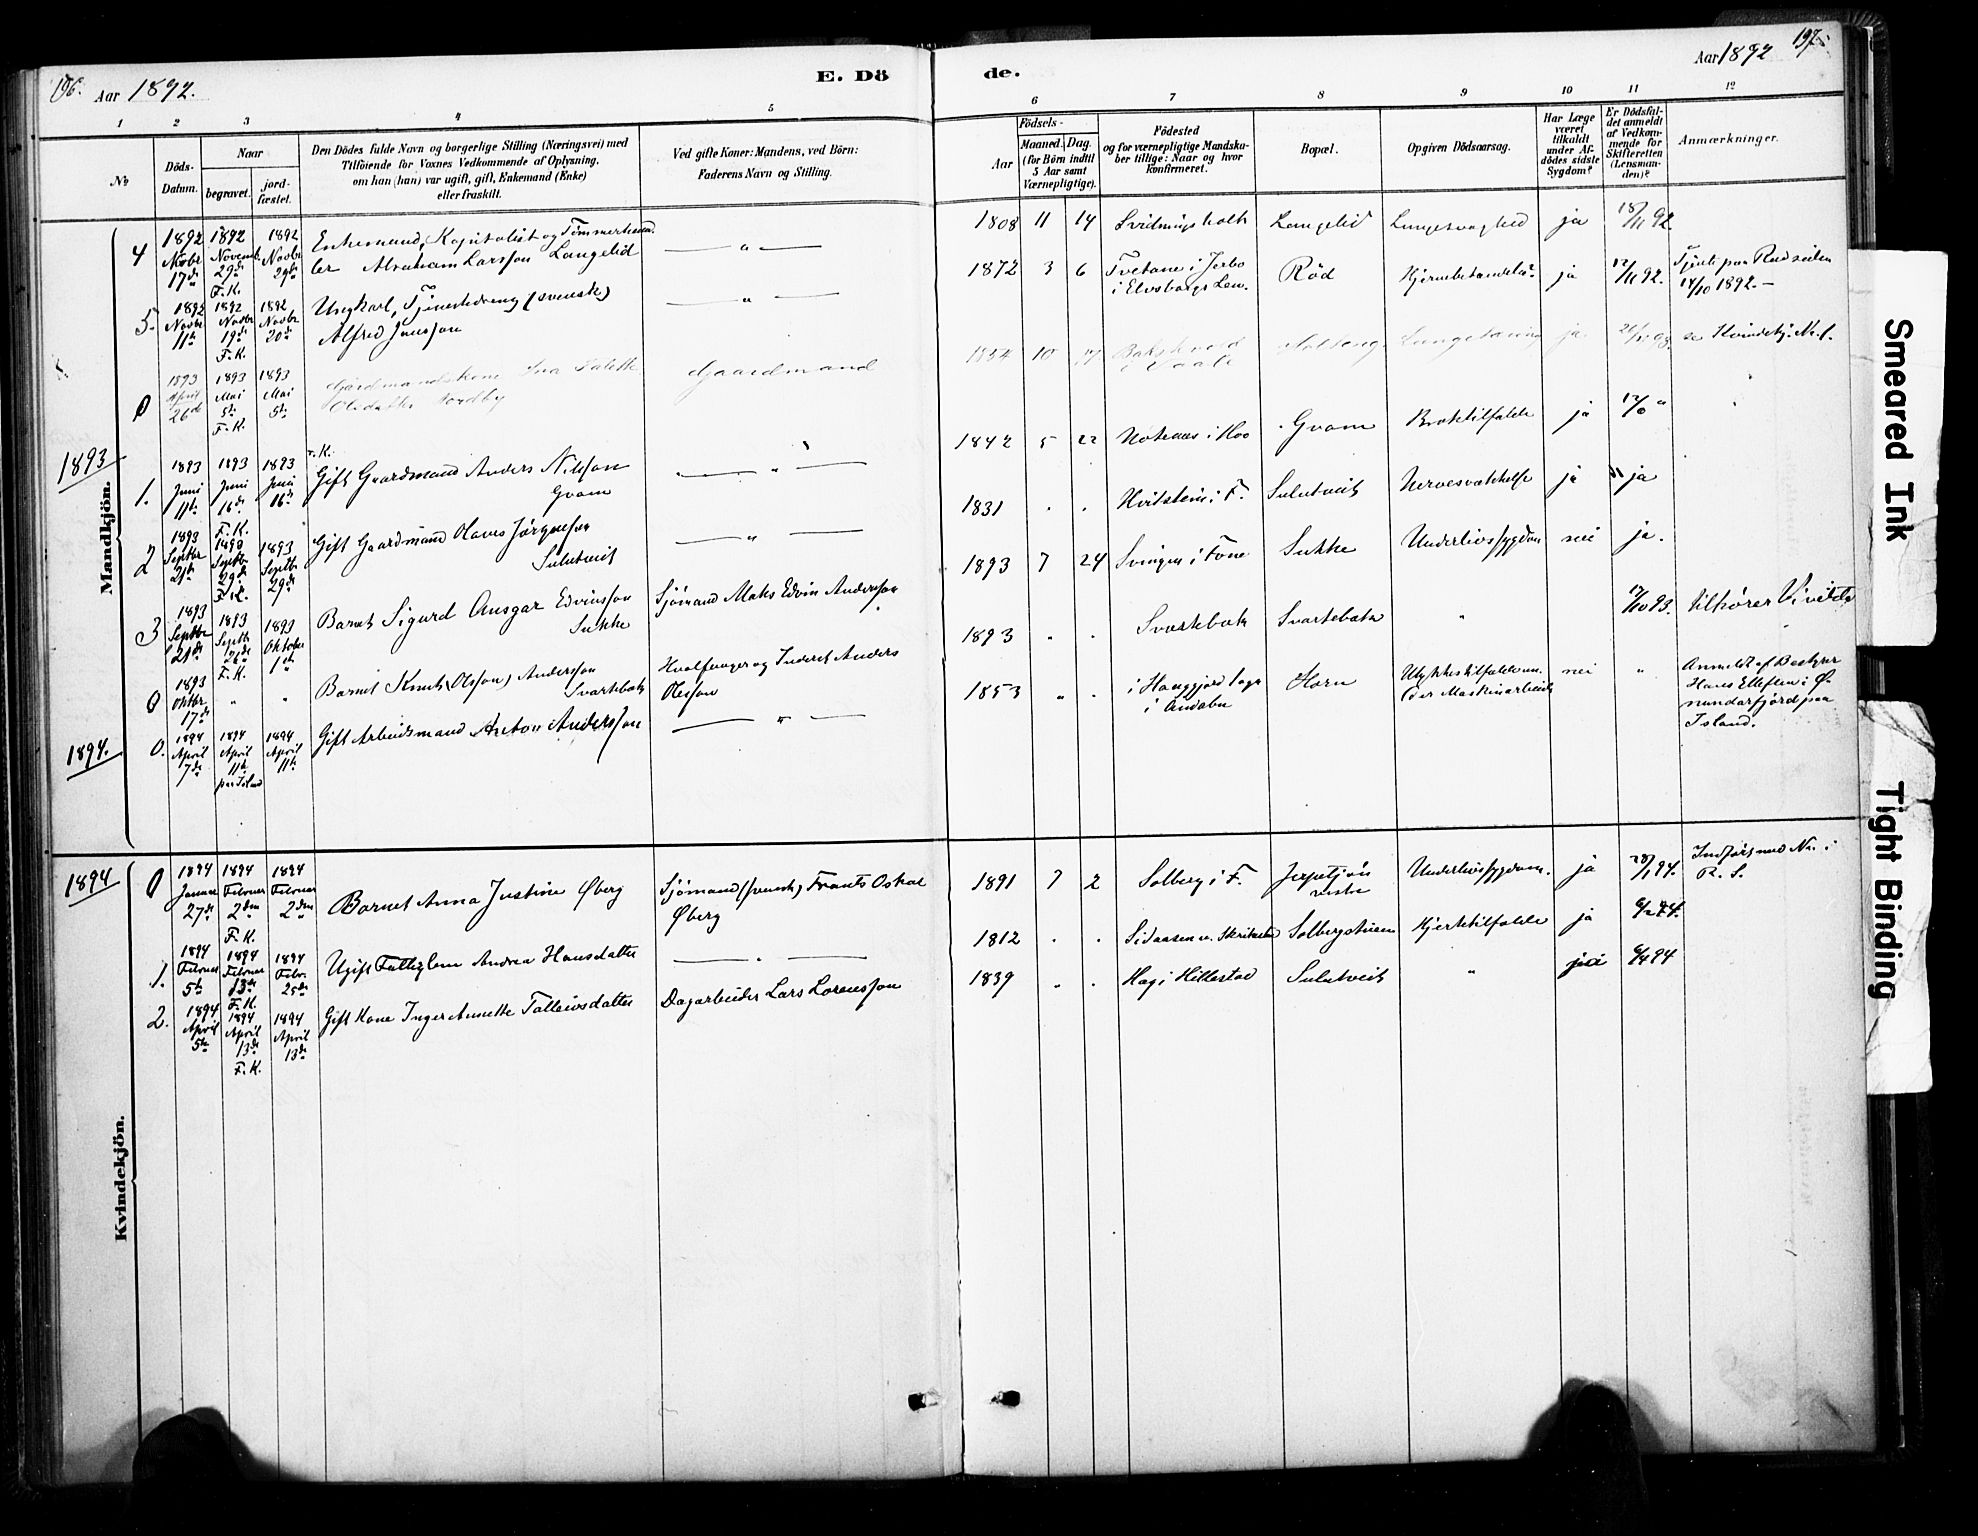 196.
Aar 1892.
E. Dö
de.
Aar 1892
197.
1
2
3
4
5
6
7
8
9
10
11
12
№
Döds-
Datum.
Naar
begravet.
jord-
fæstet.
Den Dödes fulde Navn og borgerlige Stilling (Næringsvei) med
Tilföiende for Voxnes Vedkommende af Oplysning,
om han (hun) var ugift, gift, Enkemand (Enke)
eller fraskilt.
Ved gifte Koner: Mandens, ved Börn:
Faderens Navn og Stilling.
Födsels-
Aar
Maaned.
Dag.
(for Börn indtil
5 Aar samt
Værnepligtige).
Födested
og for værnepligtige Mandska-
ber tillige: Naar og hvor
konfirmeret.
Bopæl.
Opgiven Dödsaarsag.
Har Læge
været
tilkaldt
under Af-
dödes sidste
Sygdom?
Er Dödsfal-
det anmeldt
af Vedkom-
mende for
Skifteretten
(Lensman-
den)?
Anmærkninger.
Mandkjön.
4
1892 Novbr 17de
1892 Novemb. 29de F. K.
1892 Novbr 29de
Enkemand, Kapitalist og Tømmerhand
ler Abraham Larsson Langelid
— " —
1808 11 14
Langelid
Lungesvaghed
ja
18/11 92
5.
1892 Novbr 11te
1892 Novbr 19de F. K.
1892 Novbr 20de
Ungkarl, Tjenestedreng (svensk)
Alfred Jonsson
— " —
1872 3 6
Tvetane i Jerbo
i Elvsborgs Len.
Rød
ja
12/11 92.
Tjente paa Rød siden
14/10 1892.—
0
1893 April 26de
1893 Mai 5te F. K.
1893 Mai 5te
Gårdmandskone
Gaardmand
1854 10
ja
se Kvindekj. No. 1.
1893
1.
1893 Juni 11te
1893 Juni 16de F. K.
1893 Juni 16de
Gift Gaardmand Anders Nilsson
Gvam
— " —
1842 5 22
Gvam
ja
2
1893 Septbr 21de
1893 Septbr 29de F. K.
1893 Septbr 29de
Gift Gaardmand Hans Jørgensen
Sulutveit
— " —
1831 . .
Hvitstein i F.
Sulutveit
Nervesvækkelse
ja
ja
3
1893 Septbr 21de
1893 Septb F. K.
1893 Oktober 1ste
Barnet Sigurd Ansgar Edvinsson
Sukke
Sjömand Mats Edvin Andersson
1893 7 24
Svinger i Fone
Sukke
Underlivssygdom
nei
ja.
0
1893 Oktbr 17de
"
"
Barnet Knut (Olsson) Andersson
Svartebæk
Hvalfanger og Inderst Anders
Olsson
1893 . .
Svartebæk
Svartebæk
"
17/10 93.
tilhører Vivilde
1894.
0.
1894 April 7de
1894 April 11te paa Island
1894 April 11te
Gift Arbeidsmand Anton Andersson
— " —
1853 " .
i Andebu
Horn
Ulykkestilfælde un-
der Maskinarbeide
nei
"
Anmeldt af Bestyrer
Hans Ellefsen i Ø-
nundarfjord paa
Island.
Kvindekjön.
1894
0
1894 Januar 27de
1894 Februar 2den F. K.
1894 Februar 2den
Barnet Anna Justine Öberg
Sjömand (svensk) Frants Oskar
Öberg
1891 7 2
Solberg i F.
vestre
Underlivssygdom.
ja
28/1 94.
Indførs med No. i
R. S.
1.
1894 Februar 5te
1894 Februar 13de F. K.
1894 Febr. 25de
Ugift Fattiglem Andrea Hansdatter
— " —
1812 . .
Solbergstuen
Hjertetilfælde
ja
6/2 94.
2.
1894 April 5te
1894 April 13de F. K.
1894 April 13de
Gift Kone Inger Annette Tallevsdatter
Dagarbeider Lars Lorensson
1839 . .
Hag i Hillestad
Sulutveit
"
6/4 94
Smeared Ink
Tight Binding